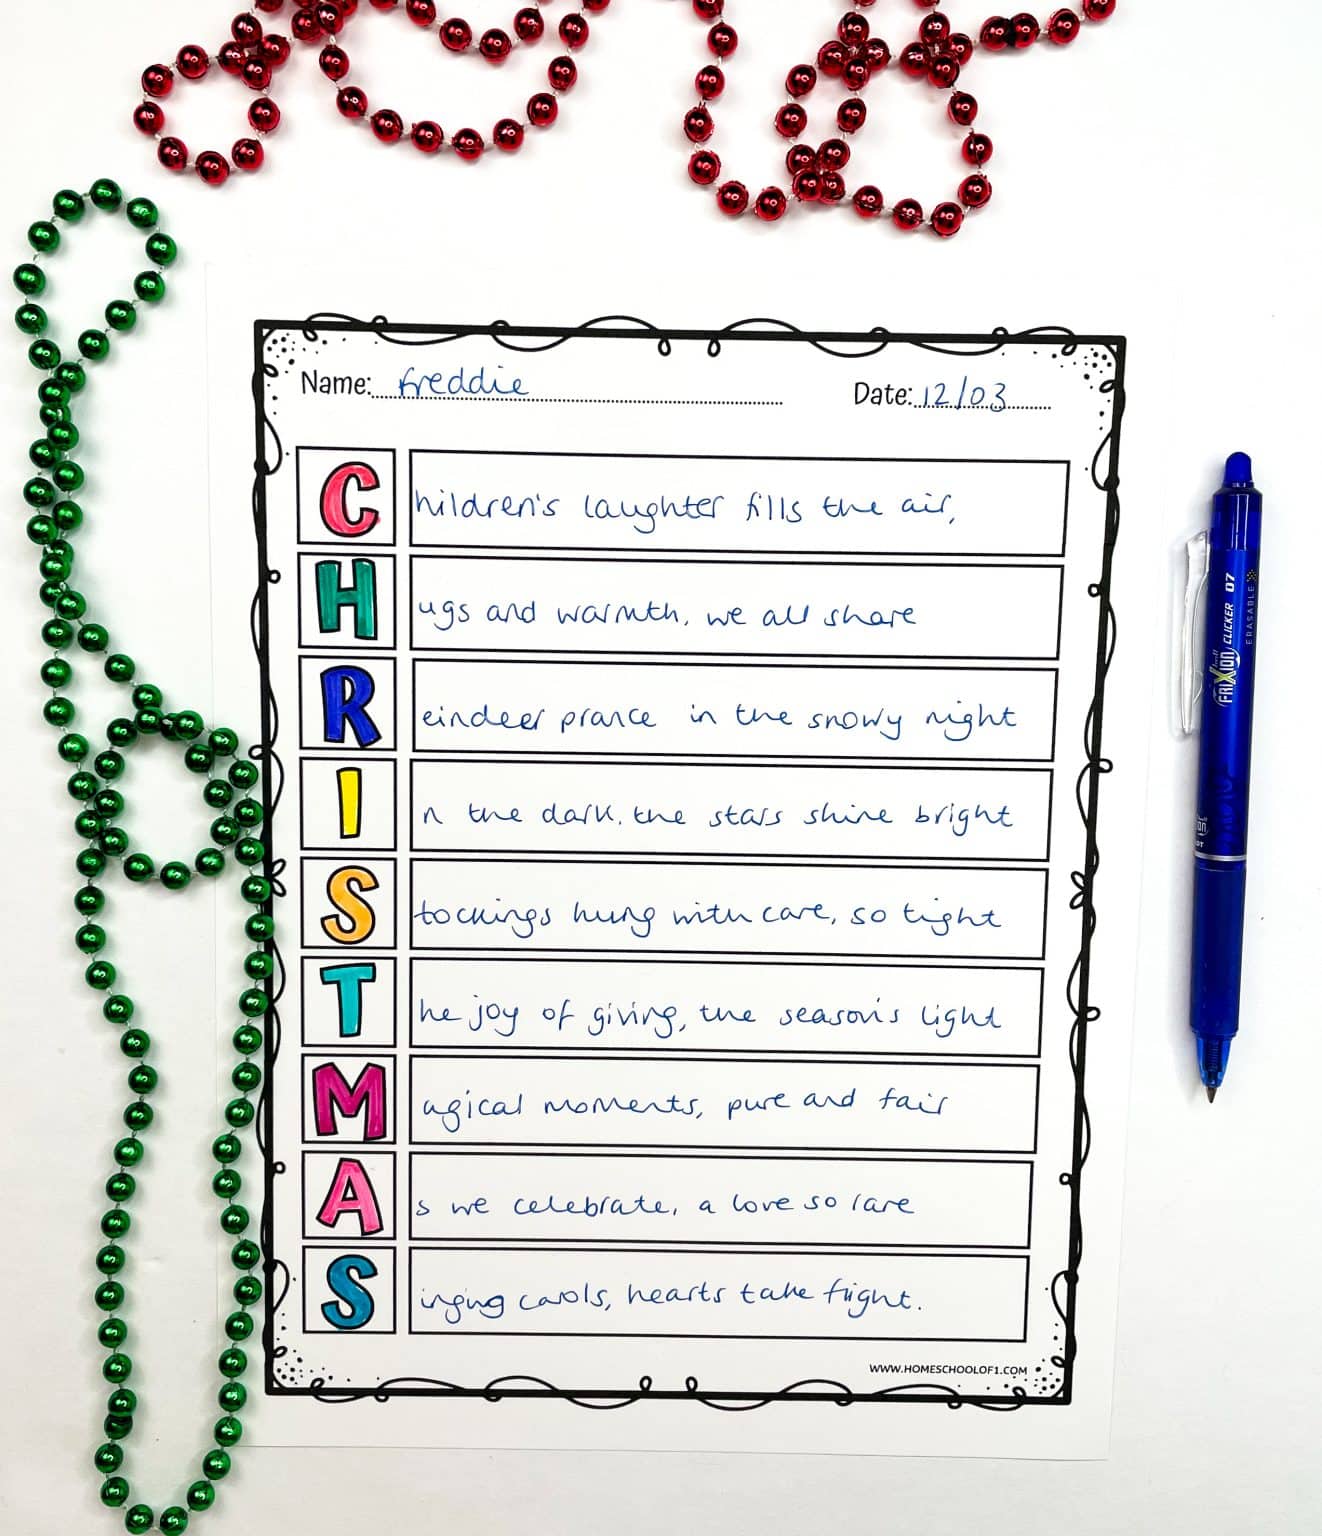 Name: Freddie
Date: 12/03
Children's laughter fills the air,
Hugs and warmth, we all share
Reindeer prance in the snowy night
In the dark, the stars shine bright
Stockings hung with care, so tight
The joy of giving, the season's light
Magical moments, pure and fair
As we celebrate, a love so rare
Singing carols, hearts take flight.
WWW.HOMESCHOOLOF1.COM
FRIXION CLICKER 07
ERASABLE